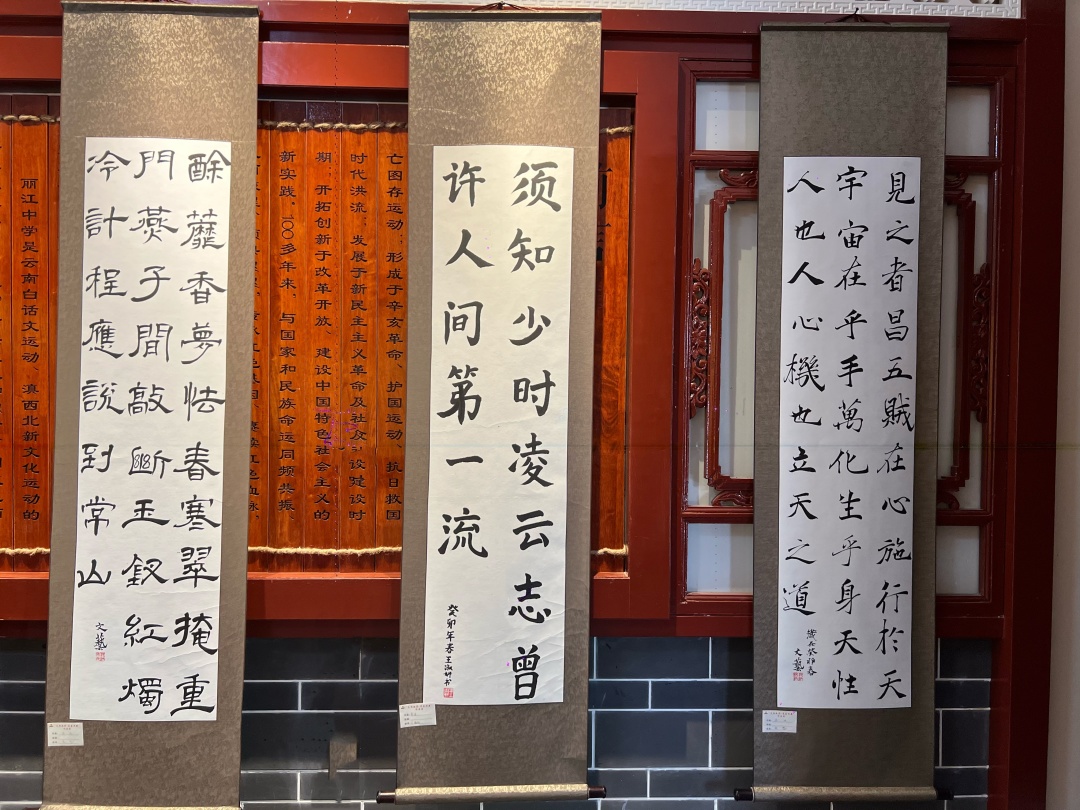 見之者昌五賊在心施行於天
宇宙在乎手萬化生乎身天性
人也人心機也立天之道
歲在癸卯春
文藝
须知少时凌云志曾
许人间第一流
癸卯年春王淑妍书
亡图存运动；形成于辛亥革命、护国运动、抗日救国
时代洪流，发展于新民主主义革命及社 设建设时
期；开拓创新于改革开放、建设中国特色社会主义的
新实践。100多年来，与国家和民族命运同频共振、
酴蘼香夢怯春寒翠掩重
門燕子間敲斷玉釵紅燭
冷計程應說到常山
文藝
丽江中学是云南白话文运动、滇西北新文化运动的